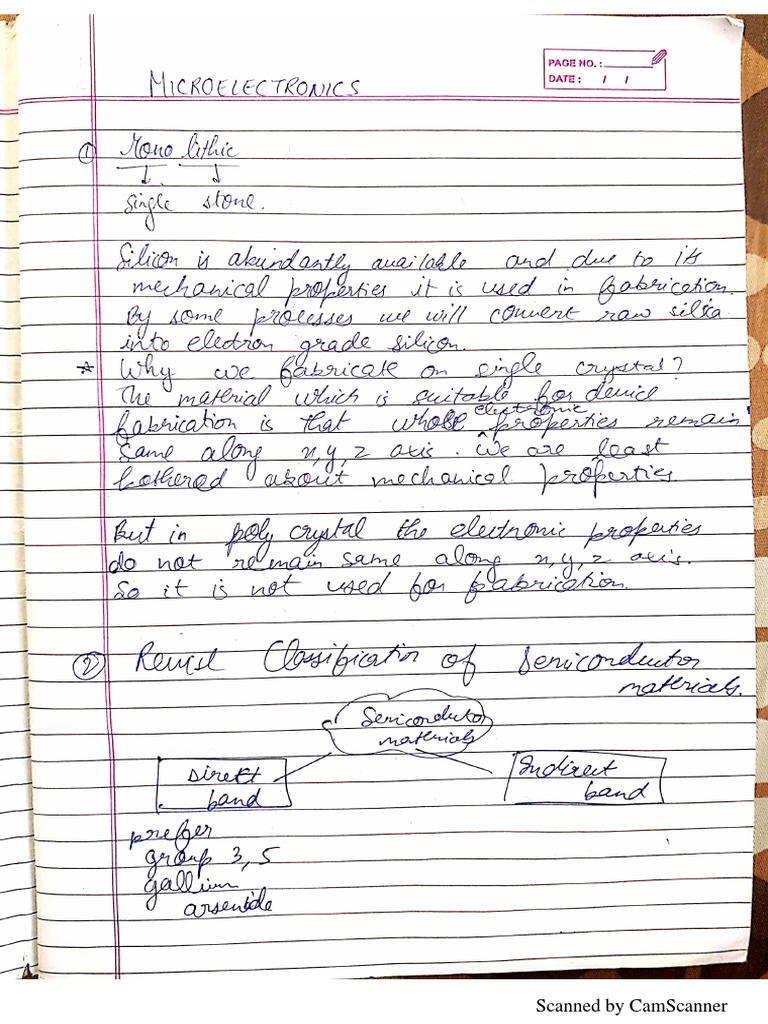 PAGE NO.:
DATE: / /
MICROELECTRONICS
① Mono lithic
↓ ↓
single stone.
Silicon is abundantly available and due to its
mechanical properties it is used in fabrication.
By some processes we will convert raw silica
into electron grade silicon.
* Why we fabricate on single crystal?
The material which is suitable for device
electronic
fabrication is that whose properties remain
same along x, y, z axis. We are least
bothered about mechanical properties
But in poly crystal the electronic properties
do not remain same along x, y, z axis.
So it is not used for fabrication.
② Revise Classification of Semiconductor
materials.
Semiconductor
materials
Direct Indirect
band band
prefer
group 3, 5
gallium
arsenide
Scanned by CamScanner